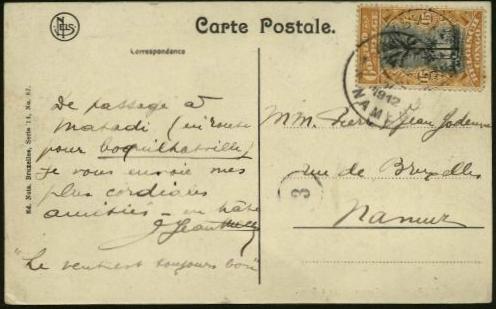 NELS
Carte Postale.
Correspondance
De passage à
Matadi (en route
pour Coquilhatville)
Je vous envoie mes
plus cordiales
amitiés - en hâte
Jean
"Le ventriest toujours bon"
Ed. Nels, Bruxelles, Serie 14, No. 67.
BELGE
15
1912
NAMU
MM. Pierre Jean
rue de Bruxelles
Namur
3